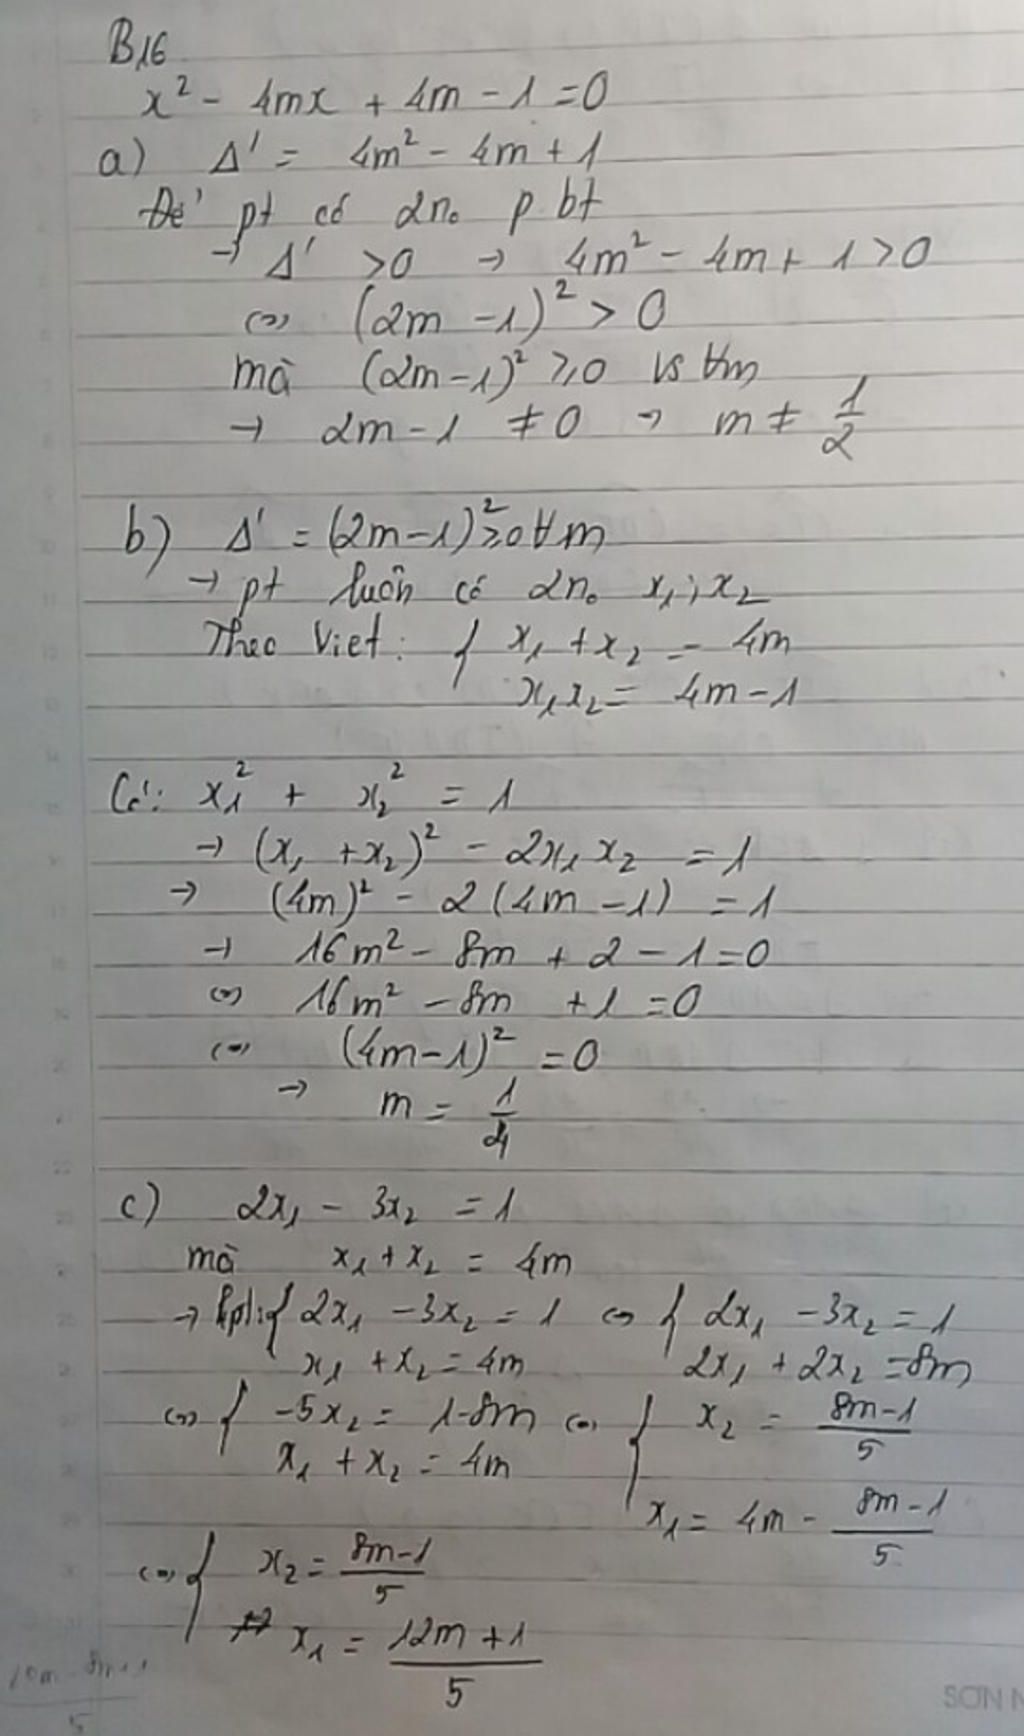 B16
x² - 4mx + 4m - 1 = 0
a) Δ' = 4m² - 4m + 1
Để pt có 2no p.bt
→ Δ' > 0 → 4m² - 4m + 1 > 0
⇔ (2m - 1)² > 0
mà (2m - 1)² ≥ 0 vs ∀m
→ 2m - 1 ≠ 0 → m ≠ 1/2
b) Δ' = (2m - 1)² ≥ 0 ∀m
→ pt luôn có 2no x₁; x₂
Theo Viet: { x₁ + x₂ = 4m
x₁x₂ = 4m - 1
Có: x₁² + x₂² = 1
→ (x₁ + x₂)² - 2x₁x₂ = 1
→ (4m)² - 2(4m - 1) = 1
→ 16m² - 8m + 2 - 1 = 0
⇔ 16m² - 8m + 1 = 0
⇔ (4m - 1)² = 0
→ m = 1/4
c) 2x₁ - 3x₂ = 1
mà x₁ + x₂ = 4m
→ hpt: { 2x₁ - 3x₂ = 1 ⇔ { 2x₁ - 3x₂ = 1
x₁ + x₂ = 4m 2x₁ + 2x₂ = 8m
⇔ { -5x₂ = 1 - 8m ⇔ { x₂ = (8m - 1)/5
x₁ + x₂ = 4m
x₁ = 4m - (8m - 1)/5
⇔ { x₂ = (8m - 1)/5
x₁ = (12m + 1)/5